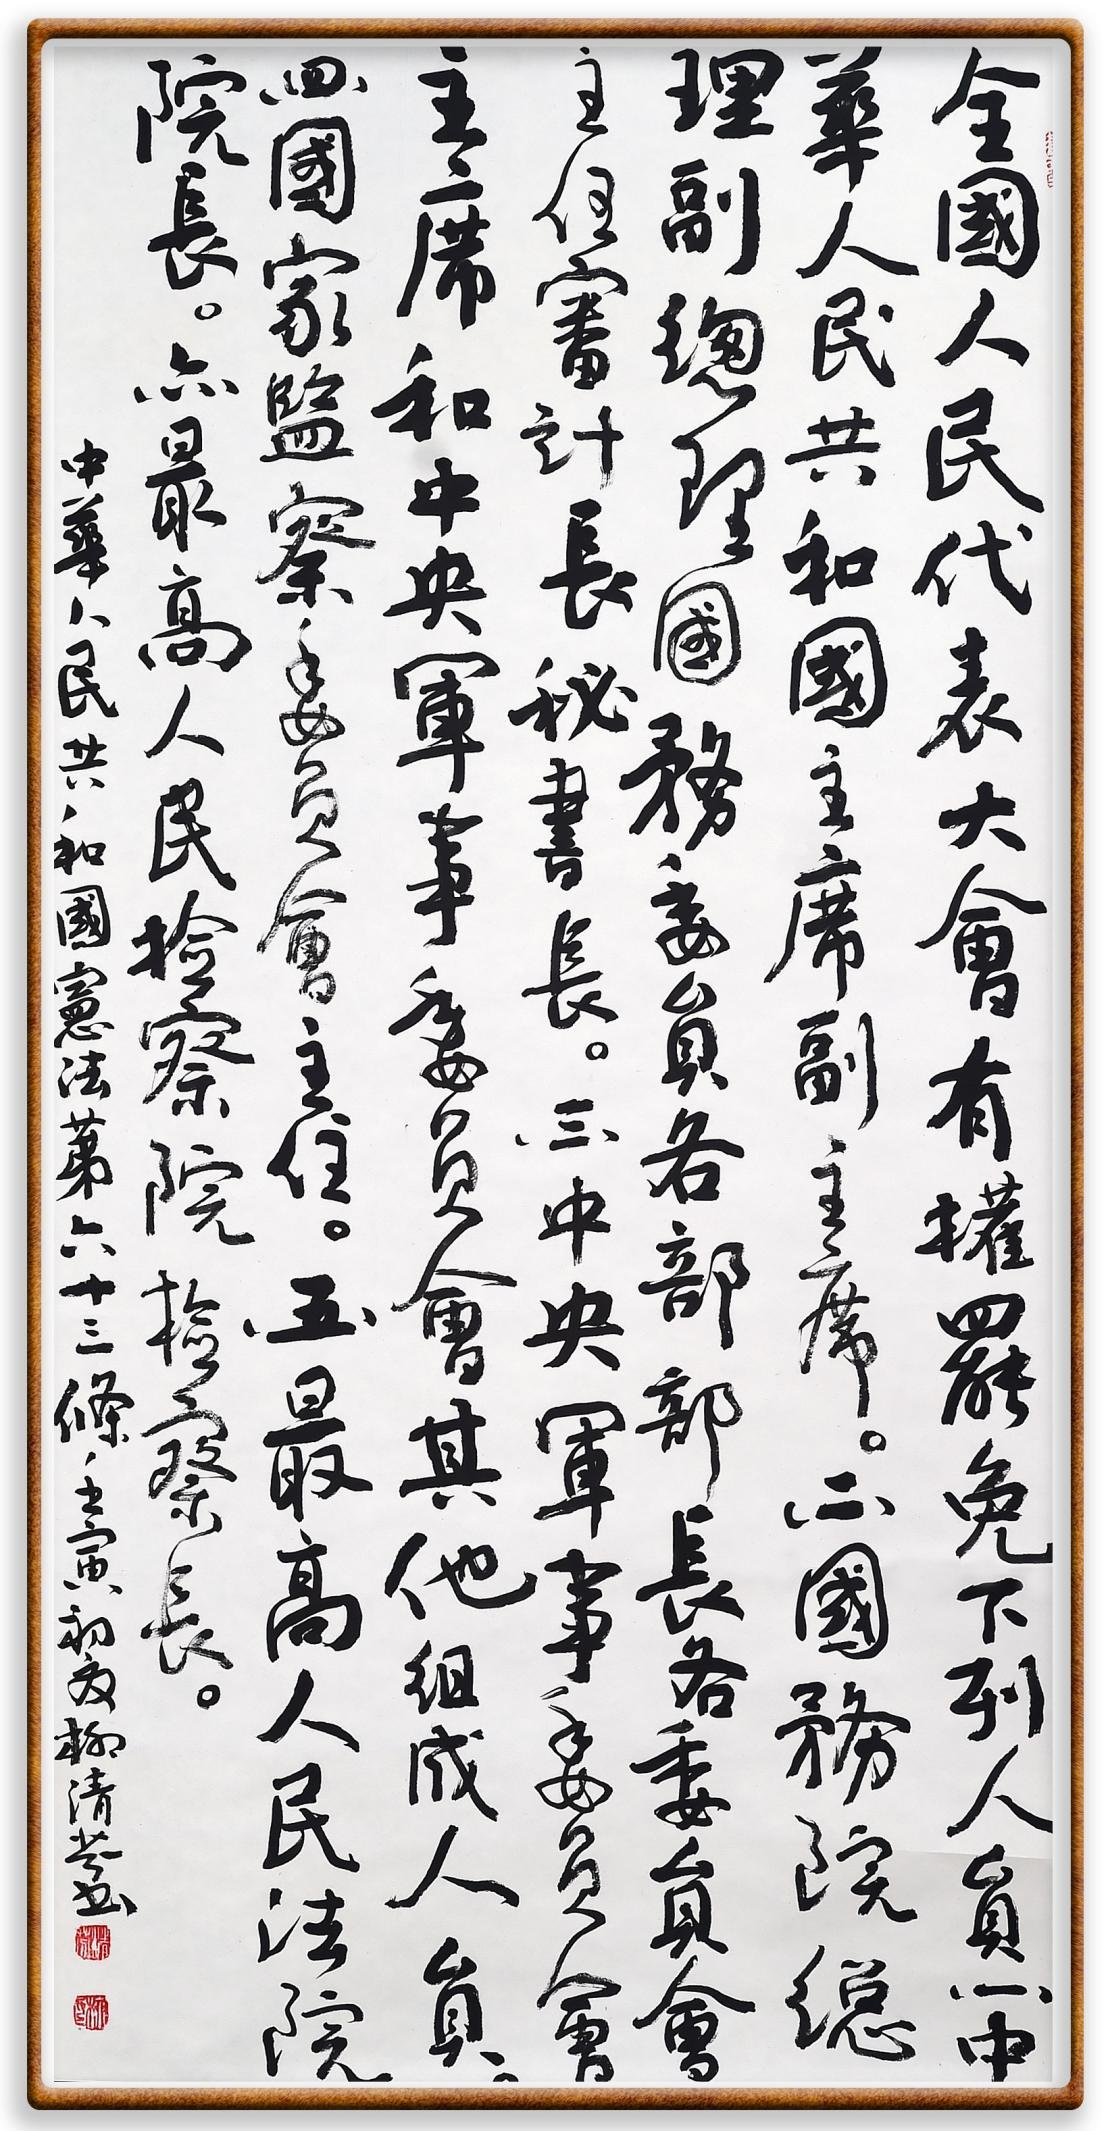 全國人民代表大會有權罷免下列人員㈠中
華人民共和國主席副主席。㈡國務院總
理副總理國務委員各部部長各委員會
主任審計長秘書長。㈢中央軍事委員會
主席和中央軍事委員會其他組成人員。
㈣國家監察委員會主任。㈤最高人民法院
院長。㈥最高人民檢察院檢察長。
中華人民共和國憲法第六十三條壬寅初夏柳清書